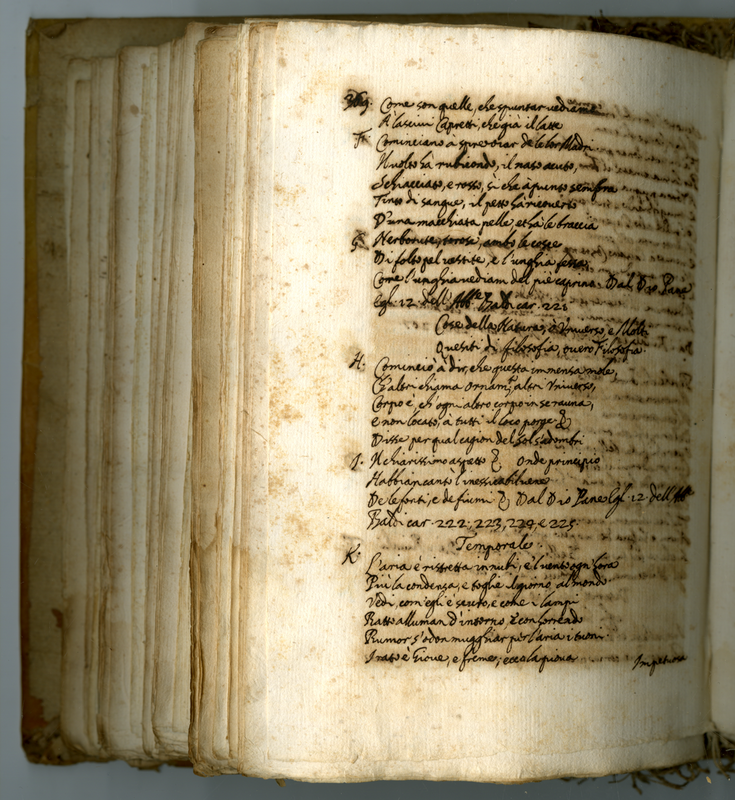 369. Come son quelle, che spuntar vediamo
A lascivi Capretti, che già il latte
F. Cominciano à sprezzar de le lor Madri
Il volto hà rubicondo, il naso acuto,
Schiacciato, e rosso, sì che à punto sembra
Tinto di sangue, il petto hà ricoverto
D'una macchiata pelle, et hà le braccia
G. Nerborute, torose, ambo le cosce
Di folto pel vestite, e l'unghia fessa,
Come l'unghia vediam del piè caprino. Dal Dio Pane
Egl. 12 dell' Abbe Baldi car. 221
Cose della Natura, è Universo, e Molti
Quesiti di filosofia, overo Filosofia
H. Cominciò à dir, che questa immensa mole,
Ch'altri chiama Ornamto altri Universo,
Corpo è ch'ogni altro corpo in se rauna,
e non locato, à tutti il loco porge &
Disse per qual cagion del sol s'adombri
I. Il chiarissimo aspetto & Onde principio
Habbian cantò l'inessicabil vene
De le fonti, e de fiumi & Dal Dio Pane Egl. 12 dell' Abe
Baldi car. 222, 223, 224, e 225.
Temporale.
K. L'aria è ristretta in nubi, e 'l vento ogn'hora
Più la condenza, e toglie il giorno al mondo
Vedi, com'egli è scuro, e come i lampi
Ratto alluman d'intorno, è con horrendo
Rumor, s'odon mugghiar per l'aria i tuoni.
Irato è Giove, e freme; ecco la piova
Impetuosa